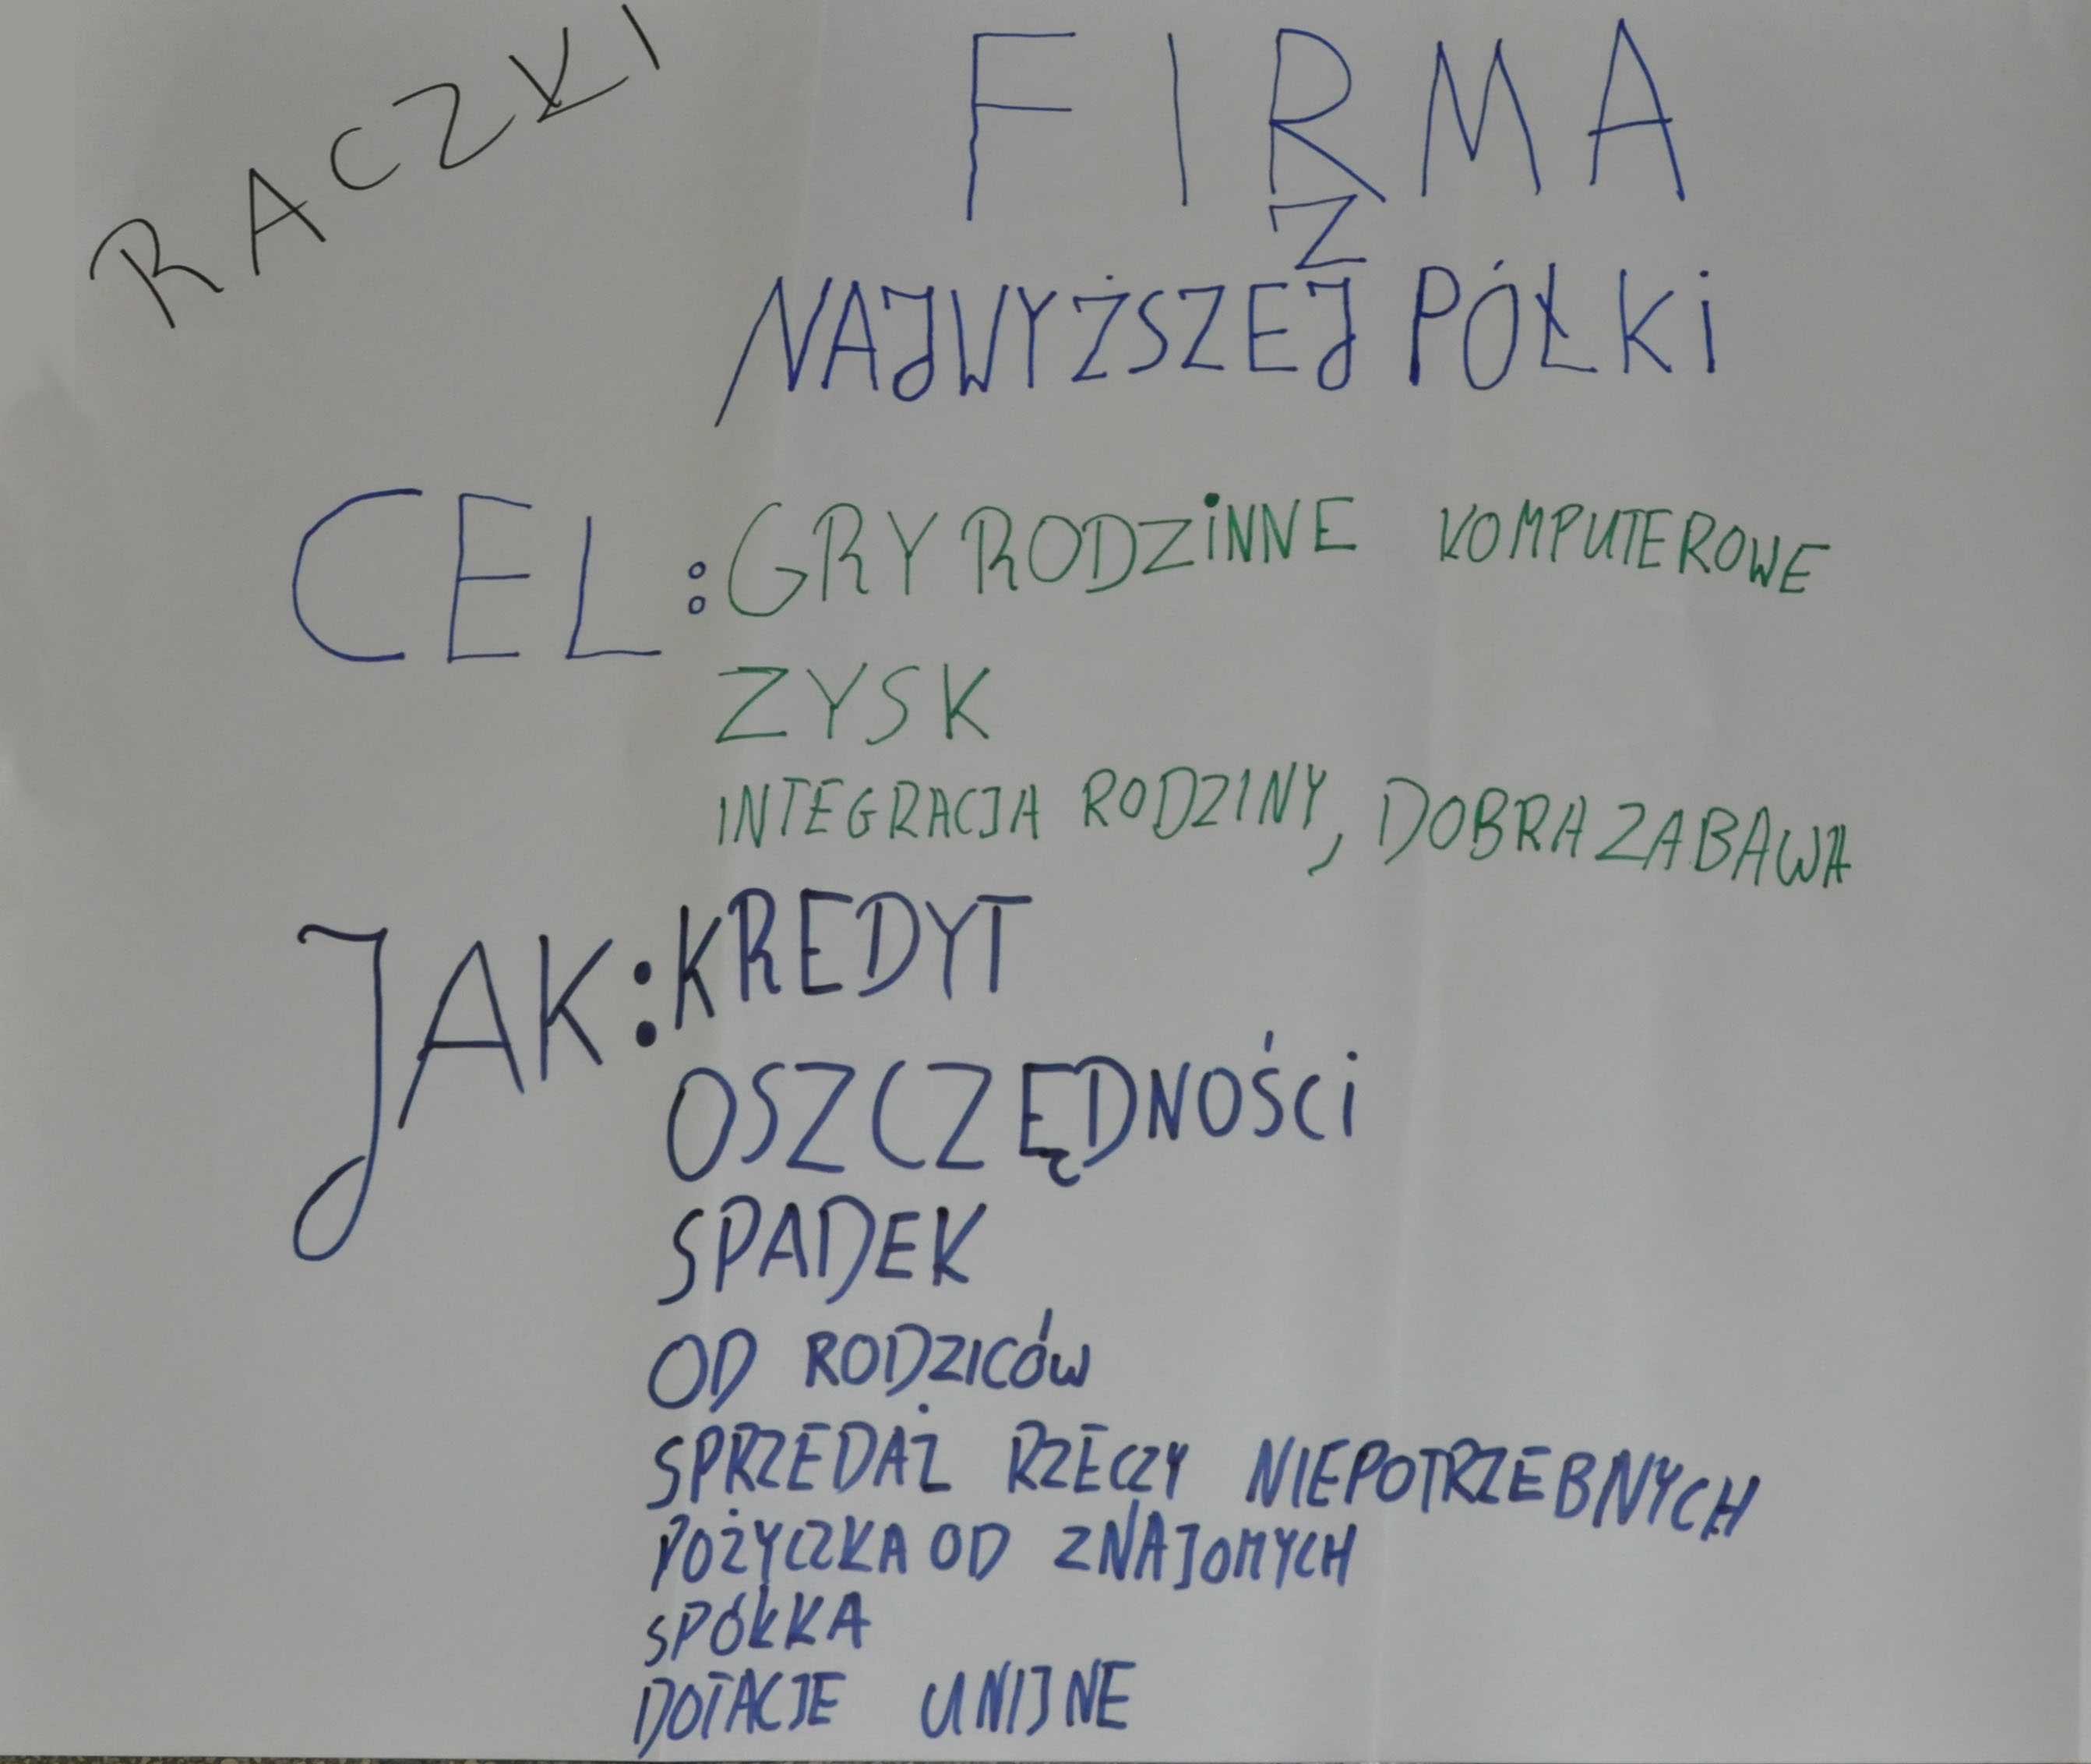 RACZKI
FIRMA
Z
NAJWYŻSZEJ PÓŁKI
CEL: GRY RODZINNE KOMPUTEROWE
ZYSK
INTEGRACJA RODZINY, DOBRA ZABAWA
JAK: KREDYT
OSZCZĘDNOŚCI
SPADEK
OD RODZICÓW
SPRZEDAŻ RZECZY NIEPOTRZEBNYCH
POŻYCZKA OD ZNAJOMYCH
SPÓŁKA
DOTACJE UNIJNE